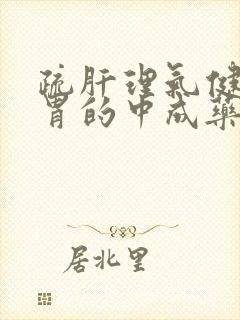 疏肝理氣健
胃的中成藥
居北里